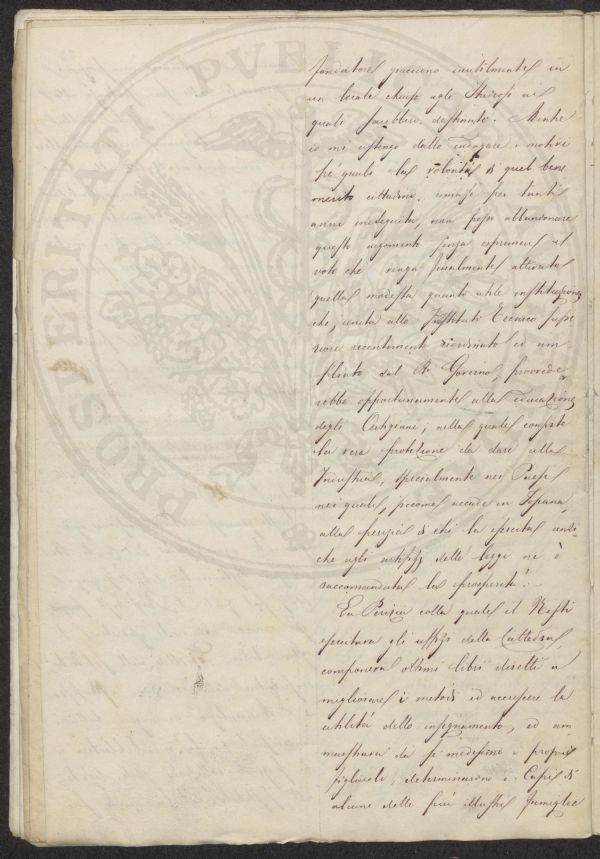 PROSPERITATI PUBLI
fondatore giacciono inutilmente in
un locale chiuso agli studiosi ai
quali sarebbero destinate. Mentre
io mi astengo dallo indagare i motivi
pe' quali la volontà di quel bene
merito cittadino, rimase per tanti
anni ineseguita, non posso abbandonare
questo argomento senza esprimere il
voto che venga finalmente attivata
quella modesta quanto utile instituzione
che, unita allo Istituto Tecnico supe
riore recentemente riordinato ed am
pliato dal R. Governo, provvede
rebbe opportunamente alla educazione
degli Artigiani; nella quale consiste
la vera protezione da dare alla
Industria, specialmente nei Paesi
nei quali, siccome accade in Toscana,
alla perizia di chi la esercita anzi
che agli artifizj delle leggi ne è
raccomandata la prosperità.
La Perizia colla quale il
esercitava gli uffizi della Cattedra,
componeva ottimi libri diretti a
migliorare i metodi ed accrescere la
utilità dello insegnamento, ed am
maestrava da se medesimo i proprii
figliuoli, determinarono i Capi di
alcune delle più illustri Famiglie